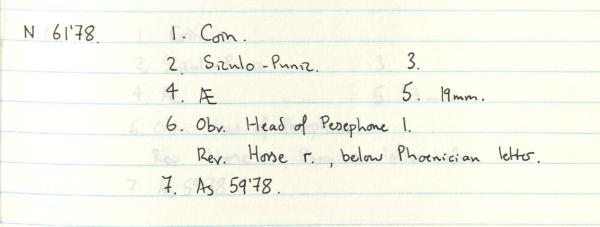 N 61'78. 1. Coin.
2. Siculo-Punic. 3.
4. Æ 5. 19mm.
6. Obv. Head of Pesephone l.
Rev. Horse r., below Phoenician letter.
7. As 59'78.